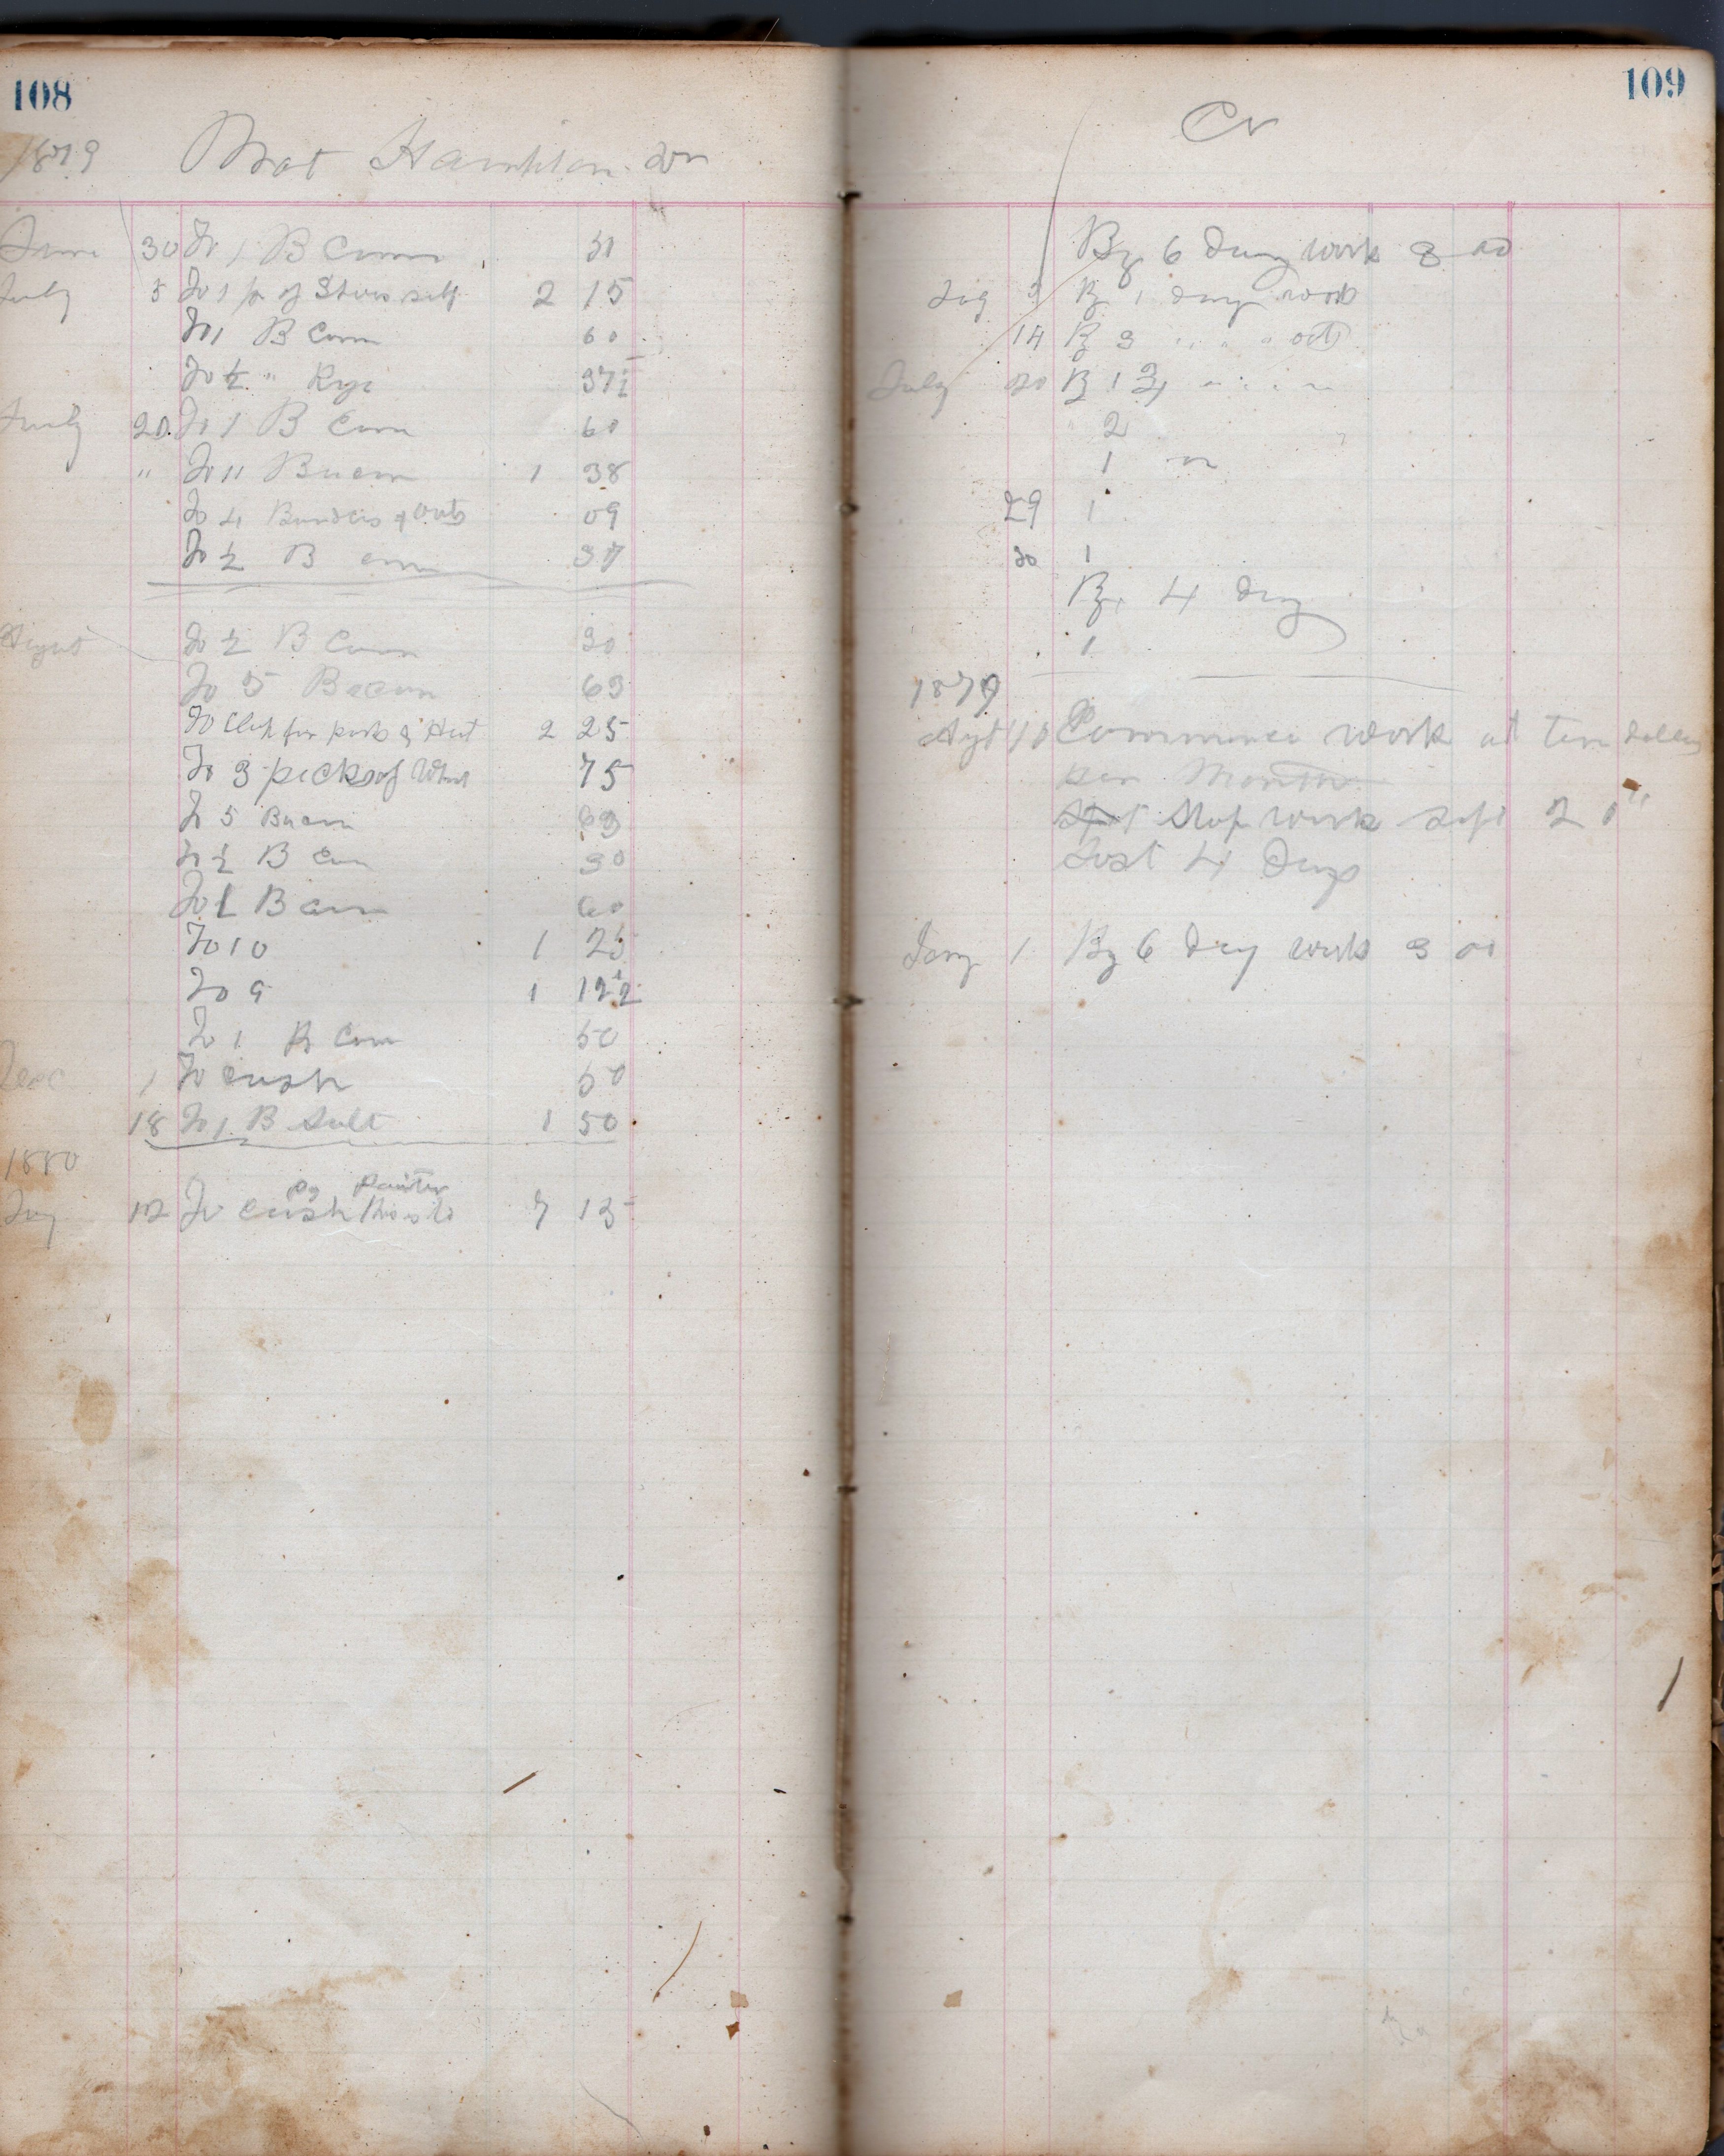 108
1879 Mat Hampton Dr
June 30 To 1 B Corn 51
July 5 To 1 pr of Shoes self 2 15
To 1 B Corn 60
To 1/2 " Rye 37 1/2
July 20 To 1 B Corn 60
" To 11 Bacon 1 38
To 4 Bundels of Oats 09
To 1/2 B corn 37
To 1/2 B Corn 30
To 5 Bacon 63
To Cloth for pants & Hat 2 25
To 3 pecks of Wheat 75
To 5 Bacon 63
To 1/2 B Corn 30
To 1 B corn 60
To 10 1 25
To 9 1 12 1/2
To 1 B Corn 50
Dec 1 To cash 50
18 To 1 B Salt 1 50
1880
12 To cash 7 15
109
Cr
By 6 Days work 3 00
3 By 1 days work
14 By 3 " " "
July 20 By 1 3/4 " " "
2
1 "
29 1
30 1
By 4 day
1
1879
Commence work at ten dollars
per Month
Stop work Sept 20"
Lost 4 Days
Jany 1 By 6 day work 3 00